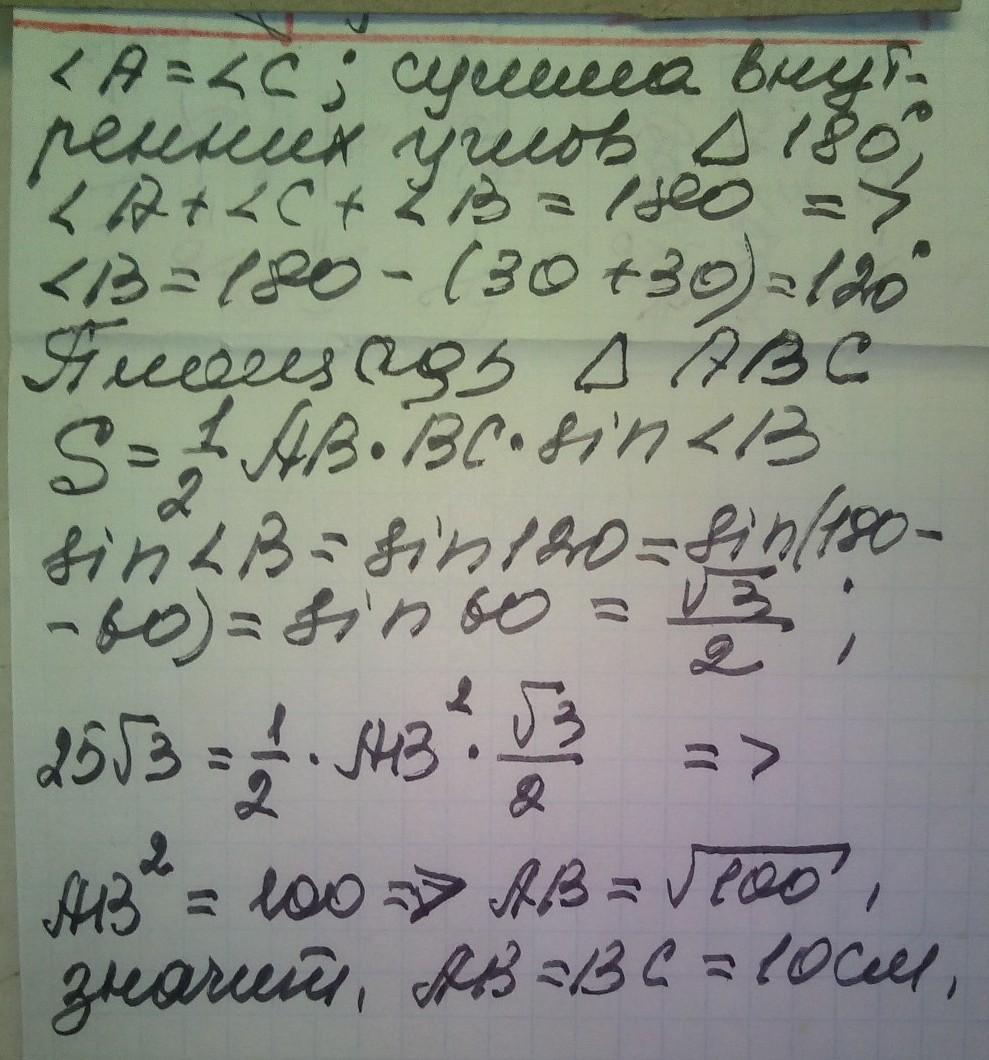 ∠A = ∠C ; сумма внут-
ренних углов Δ 180°,
∠A + ∠C + ∠B = 180 =>
∠B = 180 - (30 + 30) = 120°
Площадь Δ ABC
S = 1/2 AB · BC · sin ∠B
sin ∠B = sin 120 = sin(180 -
- 60) = sin 60 = √3/2 ;
25√3 = 1/2 · AB² · √3/2 =>
AB² = 100 => AB = √100 ,
значит, AB = BC = 10 см,